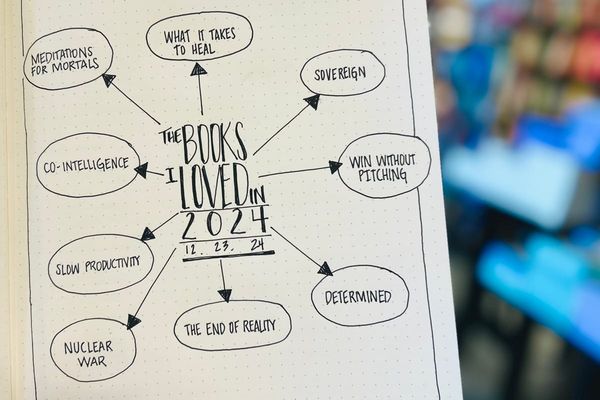 WHAT IT TAKES
TO HEAL
MEDITATIONS
FOR MORTALS
SOVEREIGN
THE BOOKS
I LOVED IN
2024
12. 23. 24
CO-INTELLIGENCE
WIN WITHOUT
PITCHING
SLOW PRODUCTIVITY
DETERMINED
THE END OF REALITY
NUCLEAR
WAR